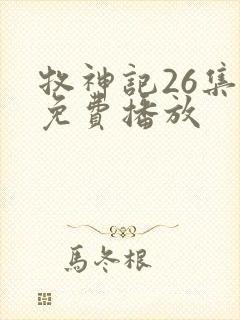 牧神記26集
免費播放
馬冬根